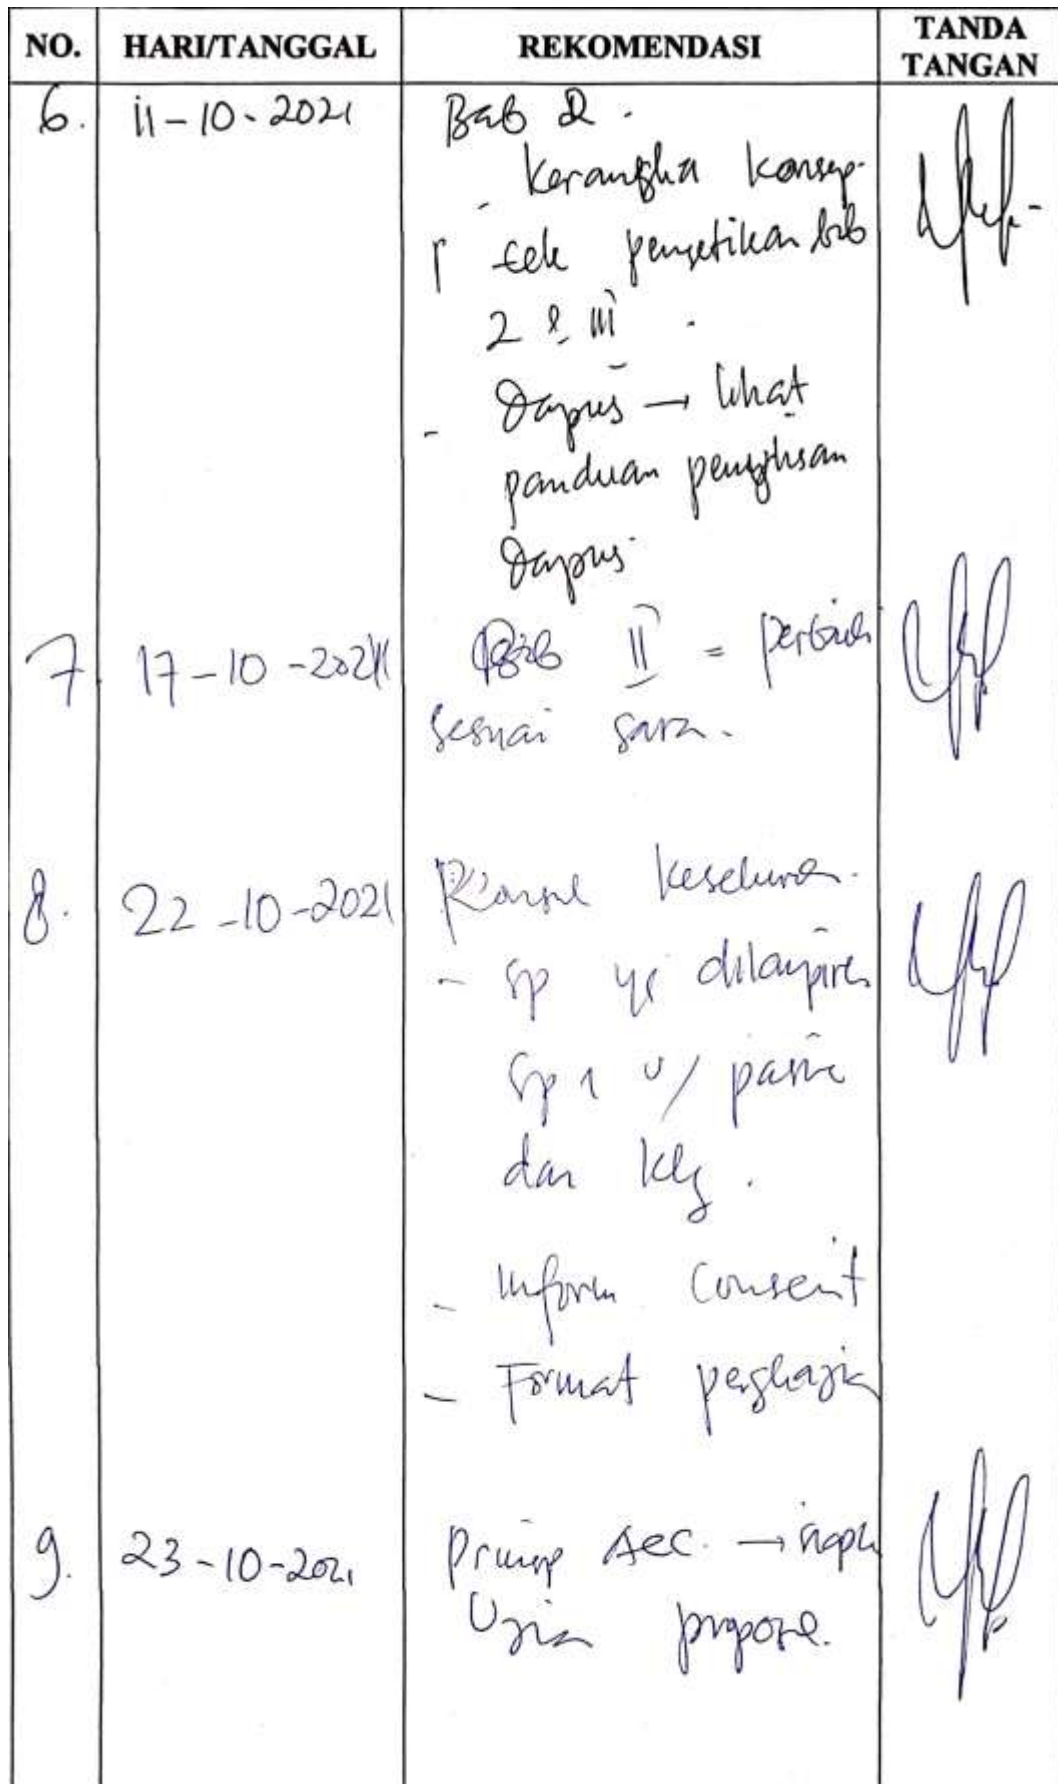 NO. HARI/TANGGAL REKOMENDASI TANDA TANGAN
6. 11-10-2021 Bab 2.
- Kerangka Konsep.
- Cek pengetikan bab
2 & III.
- Dapus → lihat
panduan penulisan
Dapus.
7 17-10-2021 Bab II = perbaiki
sesuai saran.
8. 22-10-2021 Konsul keseluruhan.
- SP yg dilampirkan
SP 1 u/ pasien
dan klg.
- Inform Consent
- Format pengkajian
9. 23-10-2021 Prinsip Acc. → siapkan
Ujian proposal.